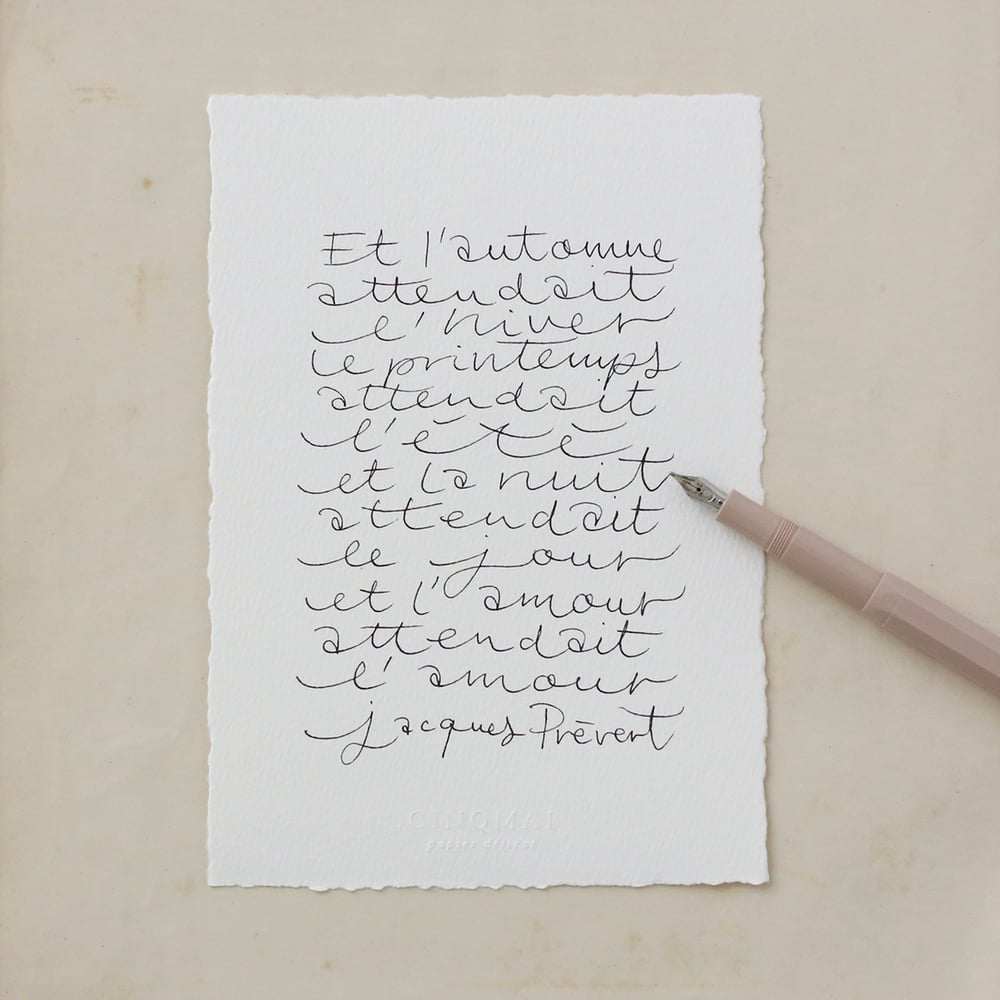 Et l'automne
attendait
l'hiver
le printemps
attendait
l'été
et la nuit
attendait
le jour
et l'amour
attendait
l'amour
Jacques Prévert
papier